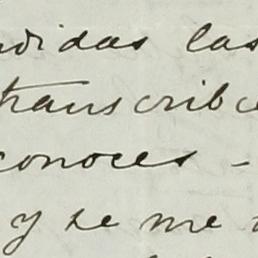 ndidas las
transcribe
conoces -
y se me